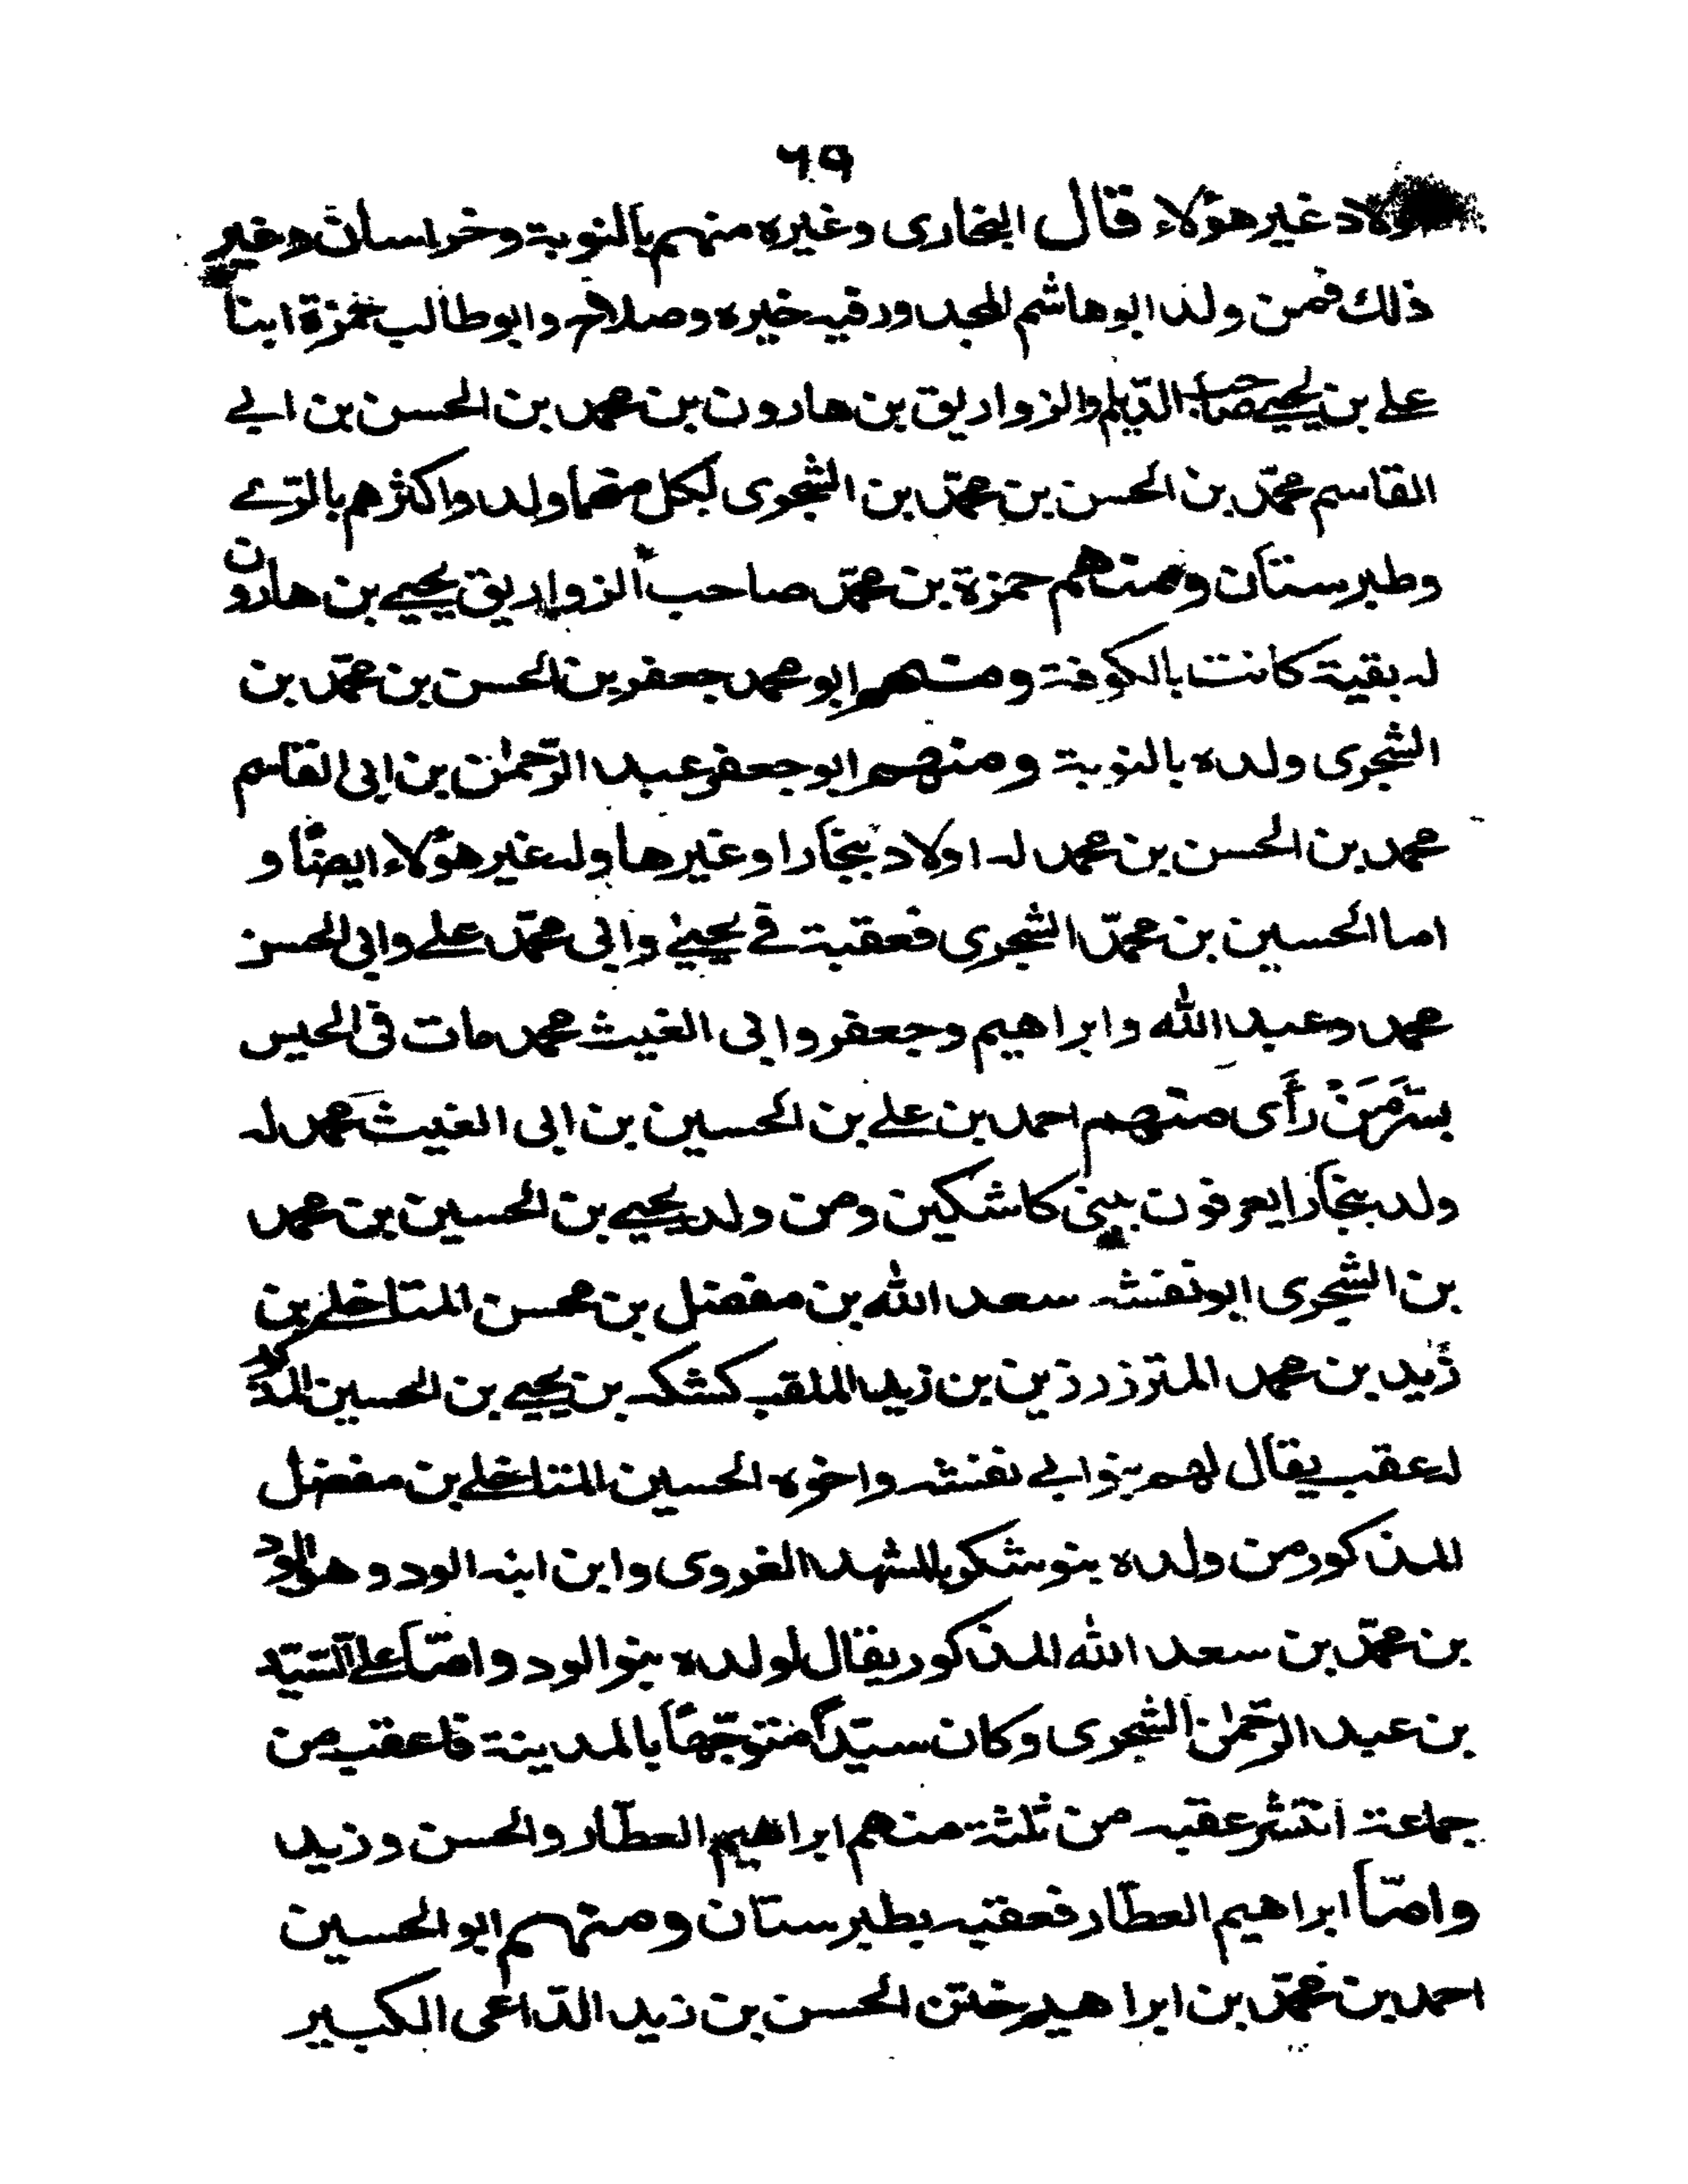 ٦٩
ولاد غير هؤلاء قال البخارى وغيره منهم بالنوبة وخراسان وغير
ذلك فمن ولد ابو هاشم المجدور فيه خيره وصلاح وابو طالب حمزة ابنا
علے بن يحيے صاحب الديلم والزواريق بن هارون بن محمد بن الحسن بن ابے
القاسم محمّد بن الحسن بن محمّد بن الشجرى لكل منهما ولد واكثرهم بالرّے
وطبرستان ومنهم حمزة بن محمّد صاحب الزواريق يحيے بن هارون
له بقية كانت بالكوفة ومنهم ابو محمد جعفر بن الحسن بن محمّد بن
الشجرى ولده بالنوبة ومنهم ابو جعفر عبد الرّحمٰن بن ابى القاسم
محمد بن الحسن بن محمد له اولاد بخارا وغيرها وله غير هؤلاء ايضًا و
اما الحسين بن محمّد الشجرى فعقبة فے يحيے وابى محمّد علے وابى الحسن
محمد وعبد الله وابراهيم وجعفر وابى الغيث محمد مات فى الحبس
بسُرَّمَنْ رَأَى منهم احمد بن علے بن الحسين بن ابى الغيث محمد له
ولد بخارا يعرفون ببنى كاشكين ومن ولد يحيے بن الحسين بن محمد
بن الشجرى ابو نفنشه سعد الله بن مفضل بن محسن المتاخلے بن
زيد بن محمد المتزرزين بن زيد الملقب كشكه بن يحيے بن الحسين المذكور
له عقب يقال لهم بنو ابے نفنشه واخوه الحسين المتاخلے بن مفضل
المذكور من ولده بنو شكر بالمشهد الغروى وابن ابنه الود وهو الود
بن محمّد بن سعد الله المذكور يقال لولده بنو الود وامّا علے السّيّد
بن عبد الرّحمٰن الشجرى وكان سيّدًا متوجّهًا بالمدينة فاعقب من
جماعة انتشر عقبه من ثلثة منهم ابراهيم العطّار والحسن وزيد
وامّا ابراهيم العطّار فعقبه بطبرستان ومنهم ابو الحسين
احمد بن محمّد بن ابراهيم ختن الحسن بن زيد الدّاعى الكبير